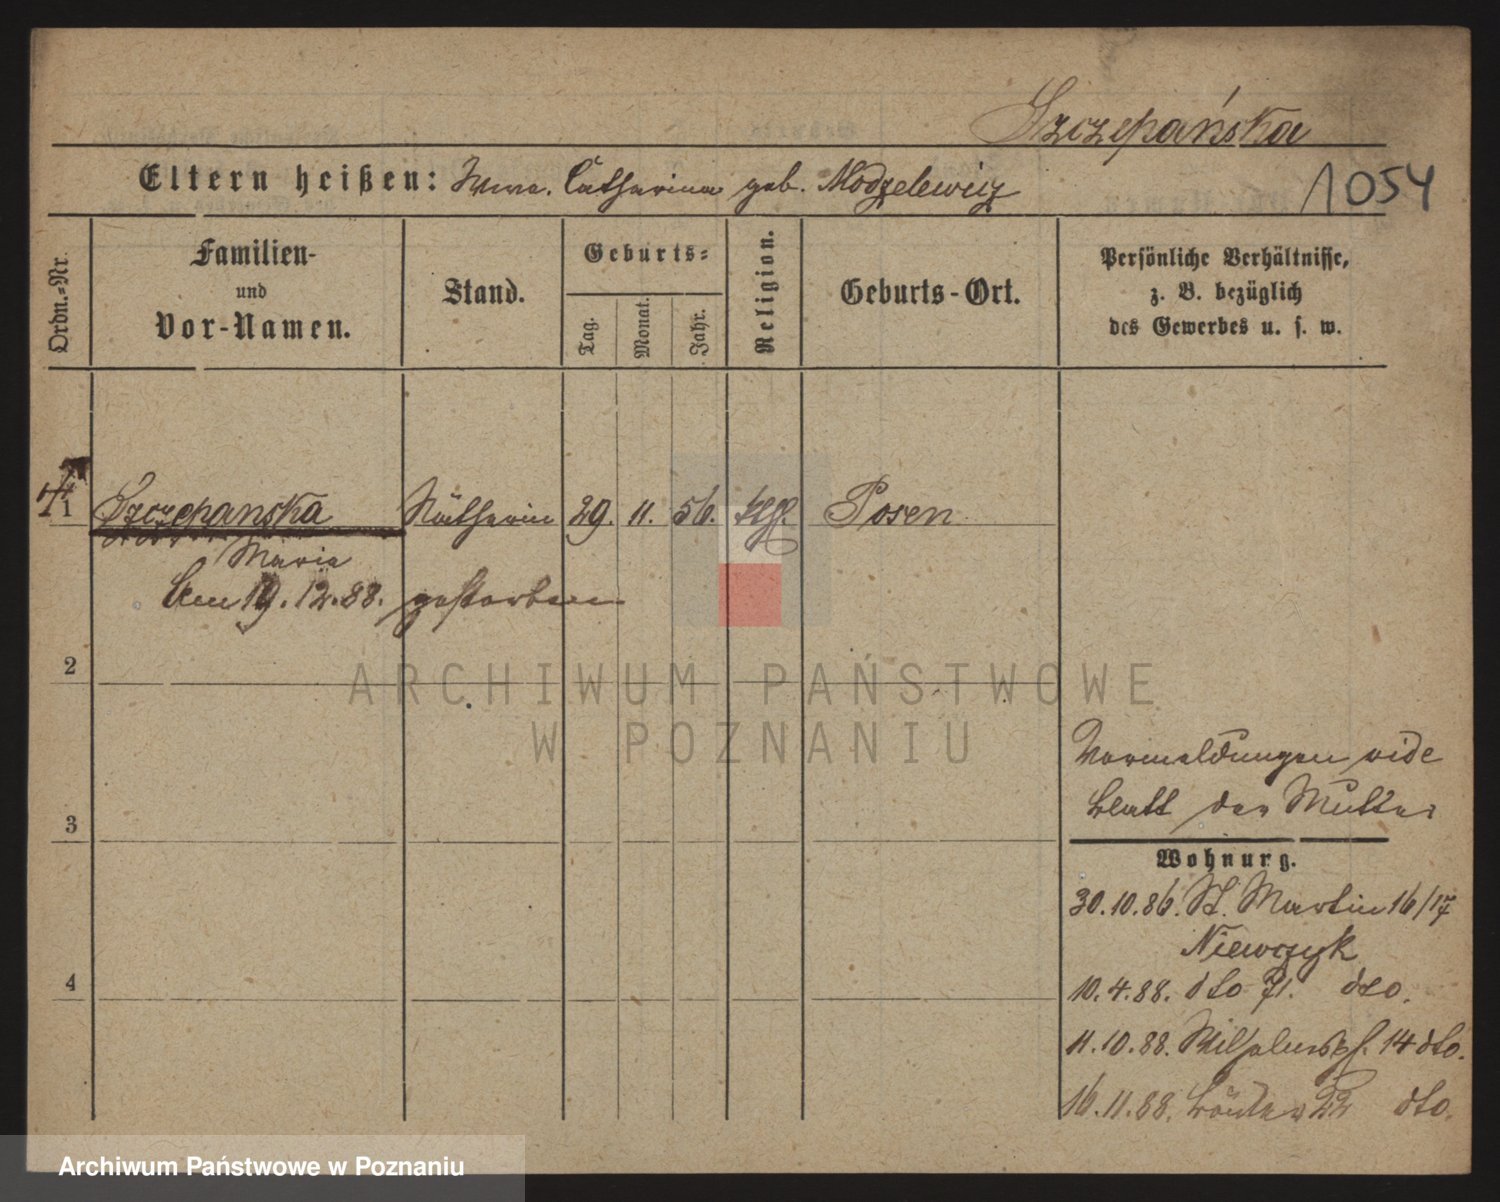 Szczepańska
Eltern heißen: Wwe. Catharina geb. Modzelewicz
1054
Ordn.-Nr.
Familien-
und
Vor-Namen.
Stand.
Geburts-
Tag.
Monat.
Jahr.
Religion.
Geburts-Ort.
Persönliche Verhältnisse,
z. B. bezüglich
des Gewerbes u. s. w.
1 Szczepanska Nätherin 29. 11. 56. kth. Posen
Maria
Am 19.12.88. gestorben
2
ARCHIWUM PAŃSTWOWE
W POZNANIU
Vormeldungen vide
Blatt der Mutter
3
Wohnung.
30.10.86. St. Martin 16/17
Niewczyk
4
10.4.88. dto 71. dto.
11.10.88. Wilhelmspl. 14 dto.
16.11.88. 22 dto.
Archiwum Państwowe w Poznaniu